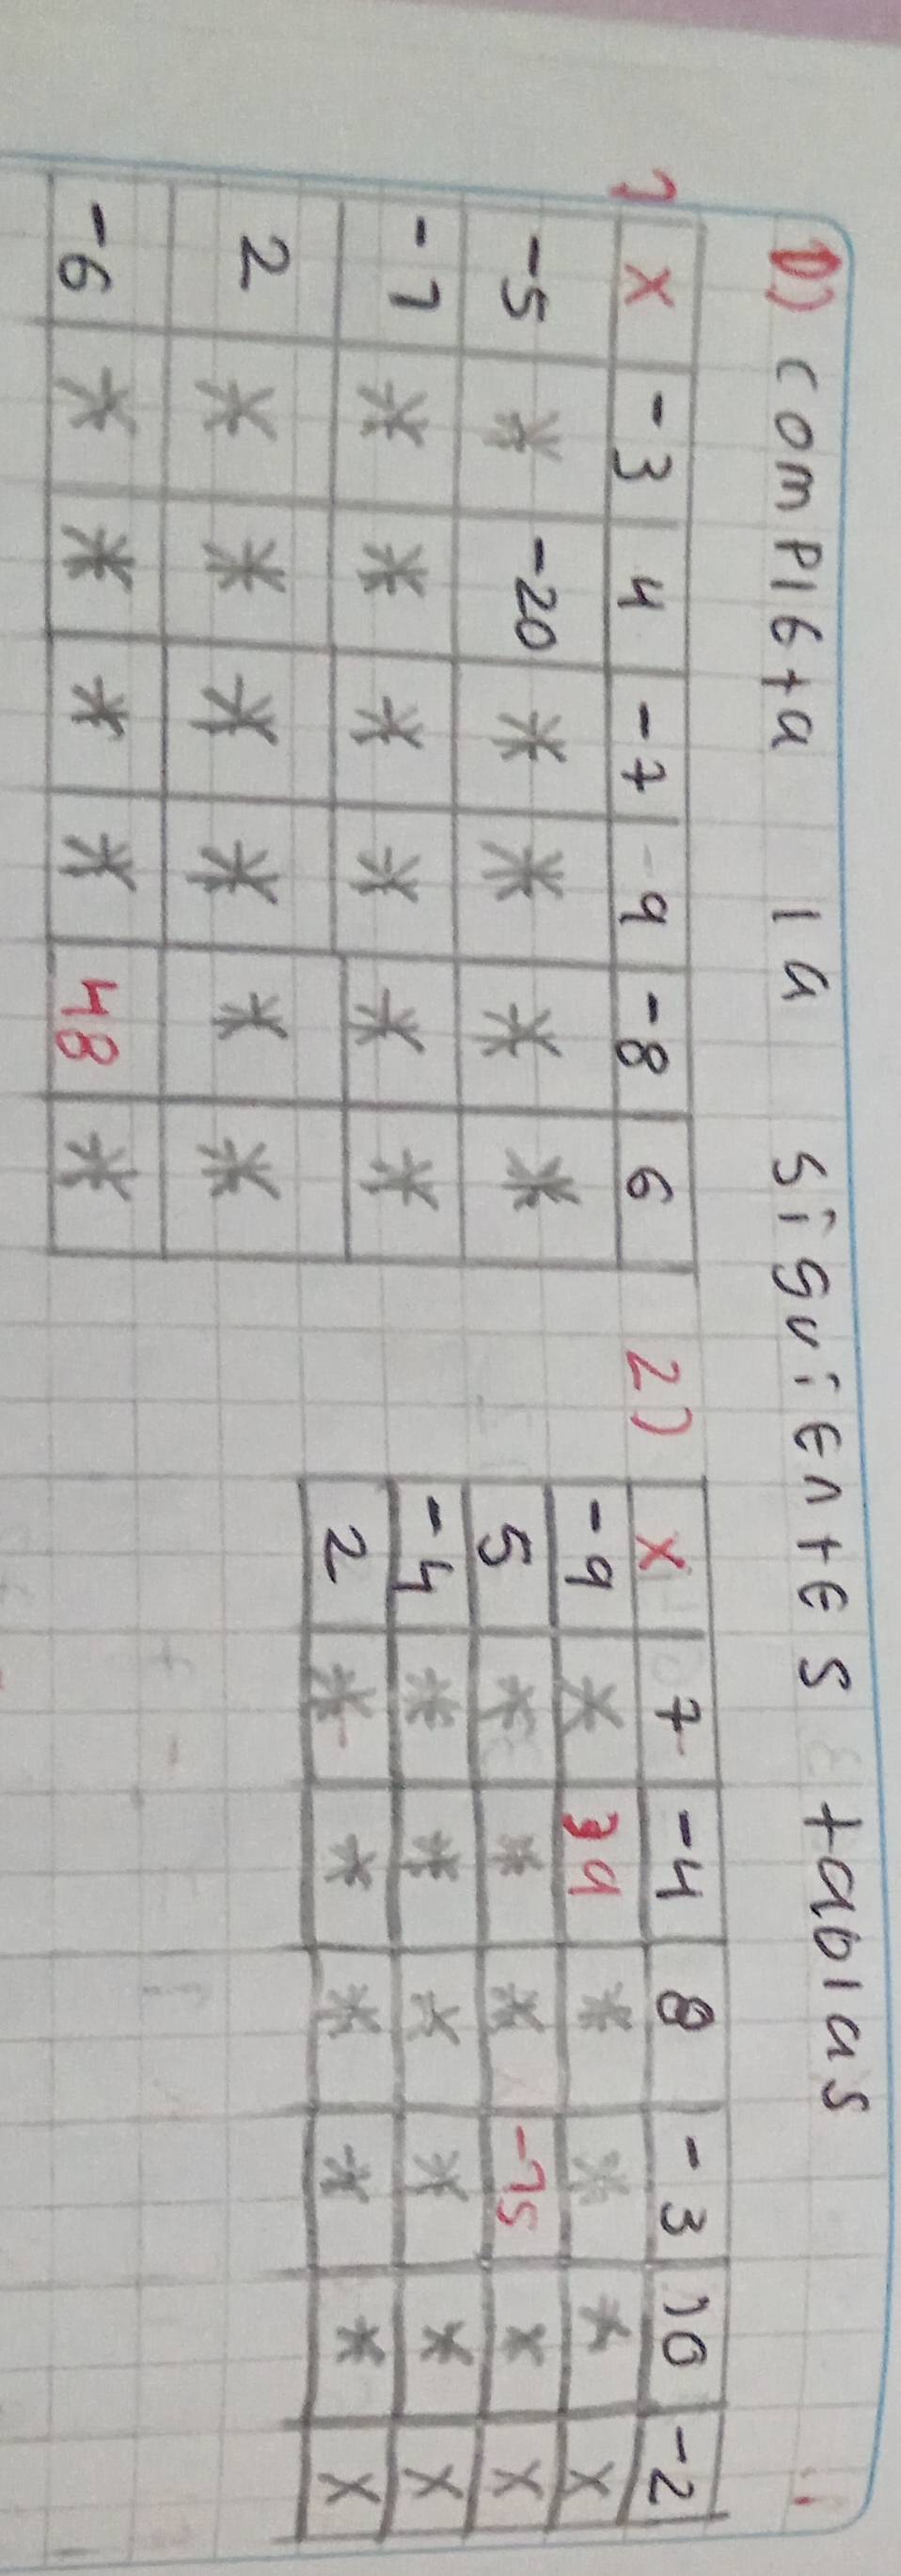 1) completa la siguientes tablas
1
x -3 4 -7 9 -8 6
-5 * -20 * * * *
-1 * * * * * *
2 * * * * * *
-6 * * * * 48 *
2)
x 7 -4 8 -3 10 -2
-9 * 39 * * * x
5 * * * -15 * x
-4 * * * * * x
2 * * * * * x